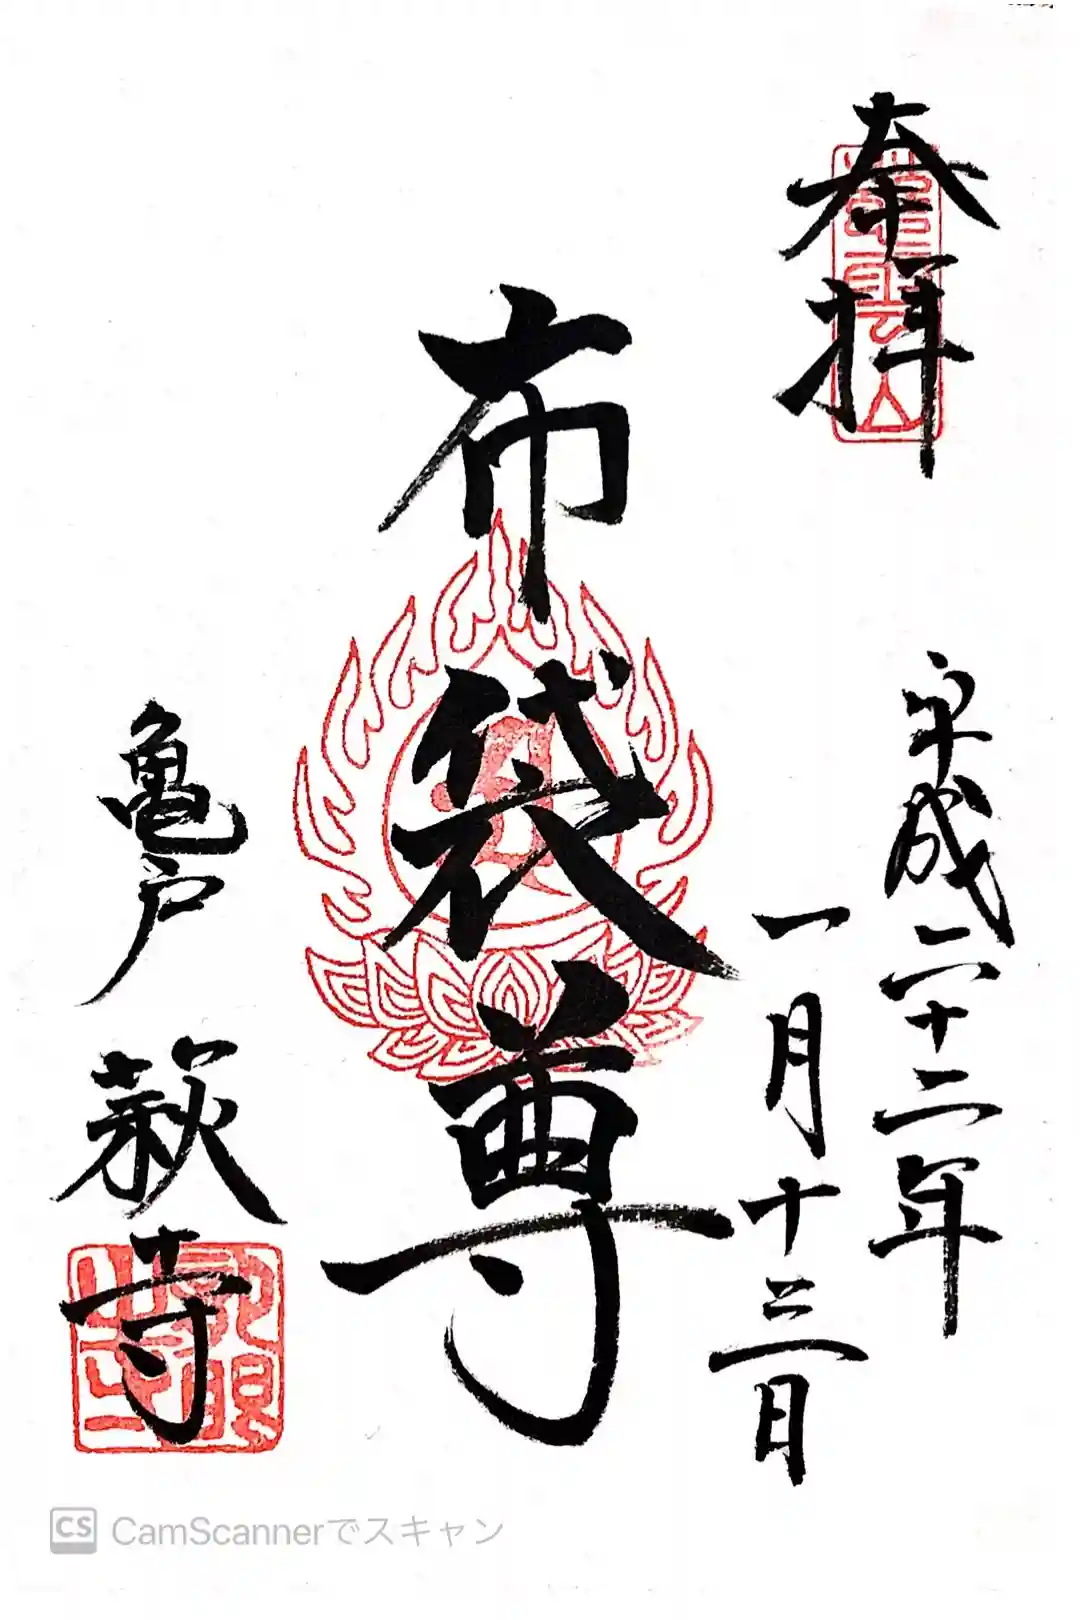 奉拝
平成二十二年
一月十三日
布袋尊
亀戸 萩寺
CS CamScannerでスキャン